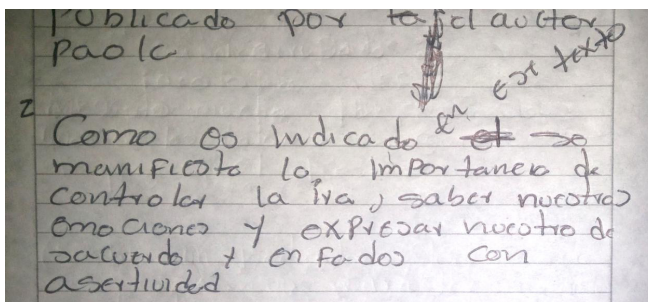 Publicado por el auctor
paola
2
Como es indicado en ese texto se
manifiesta la importancia de
controlar la ira, saber nuestras
emociones y expresar nuestro de
sacuerdo y enfados con
asertividad